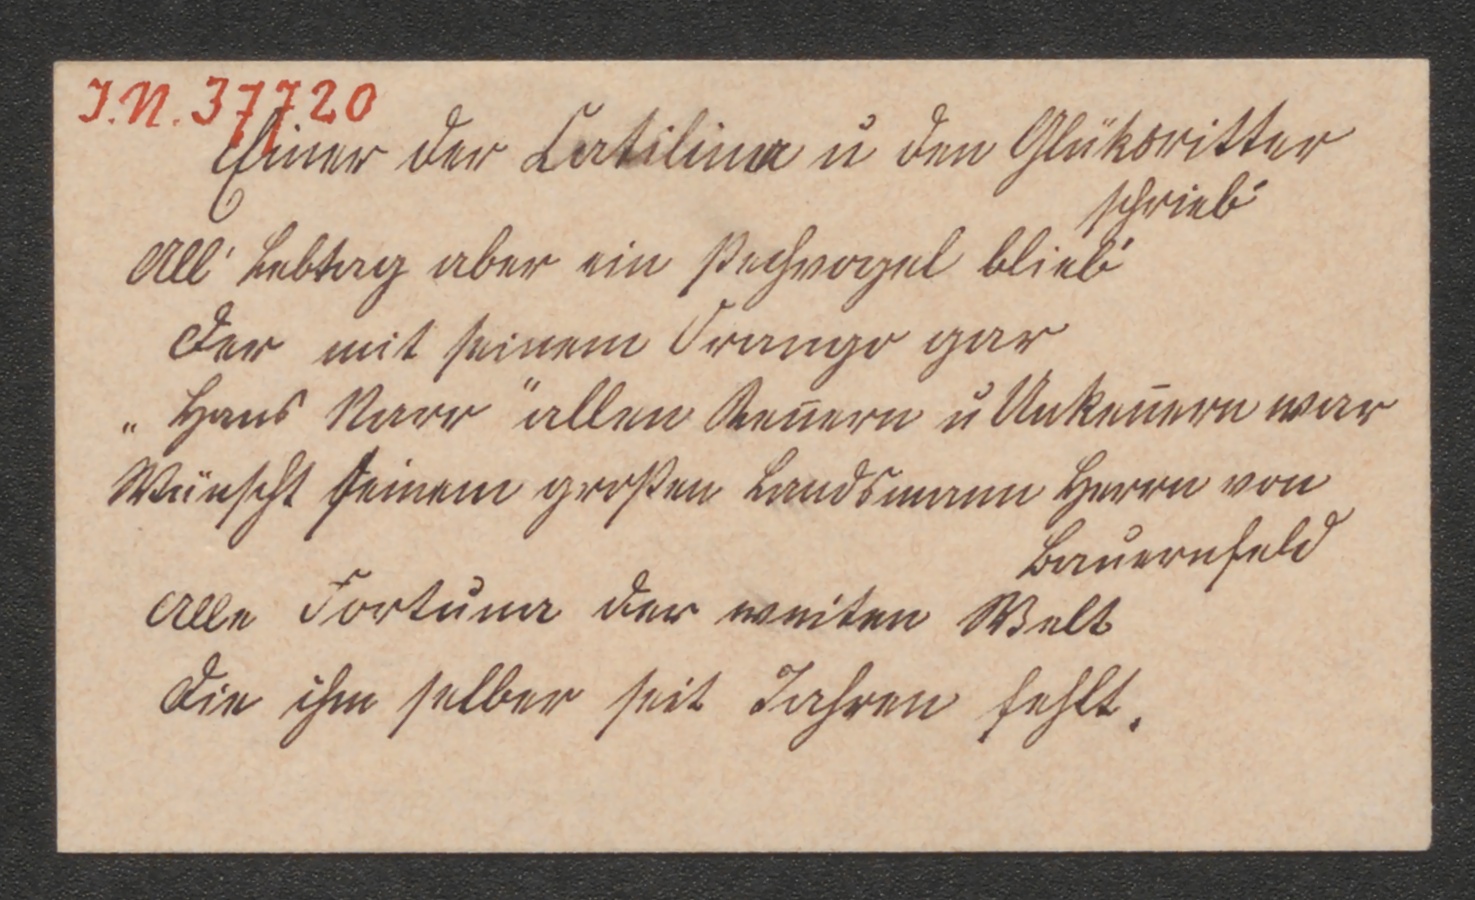 I.N. 37720
Einer der Catilina u den Glüksritter
schrieb'
All' Lebtag aber ein Pechvogel blieb'
Der mit seinem Drange gar
„Hans Narr" allen Keñern u Unkeñern war
Wünscht seinem großen Landsmann Herrn von
Bauernfeld
Alle Fortuna der weiten Welt
Die ihm selber seit Jahren fehlt.